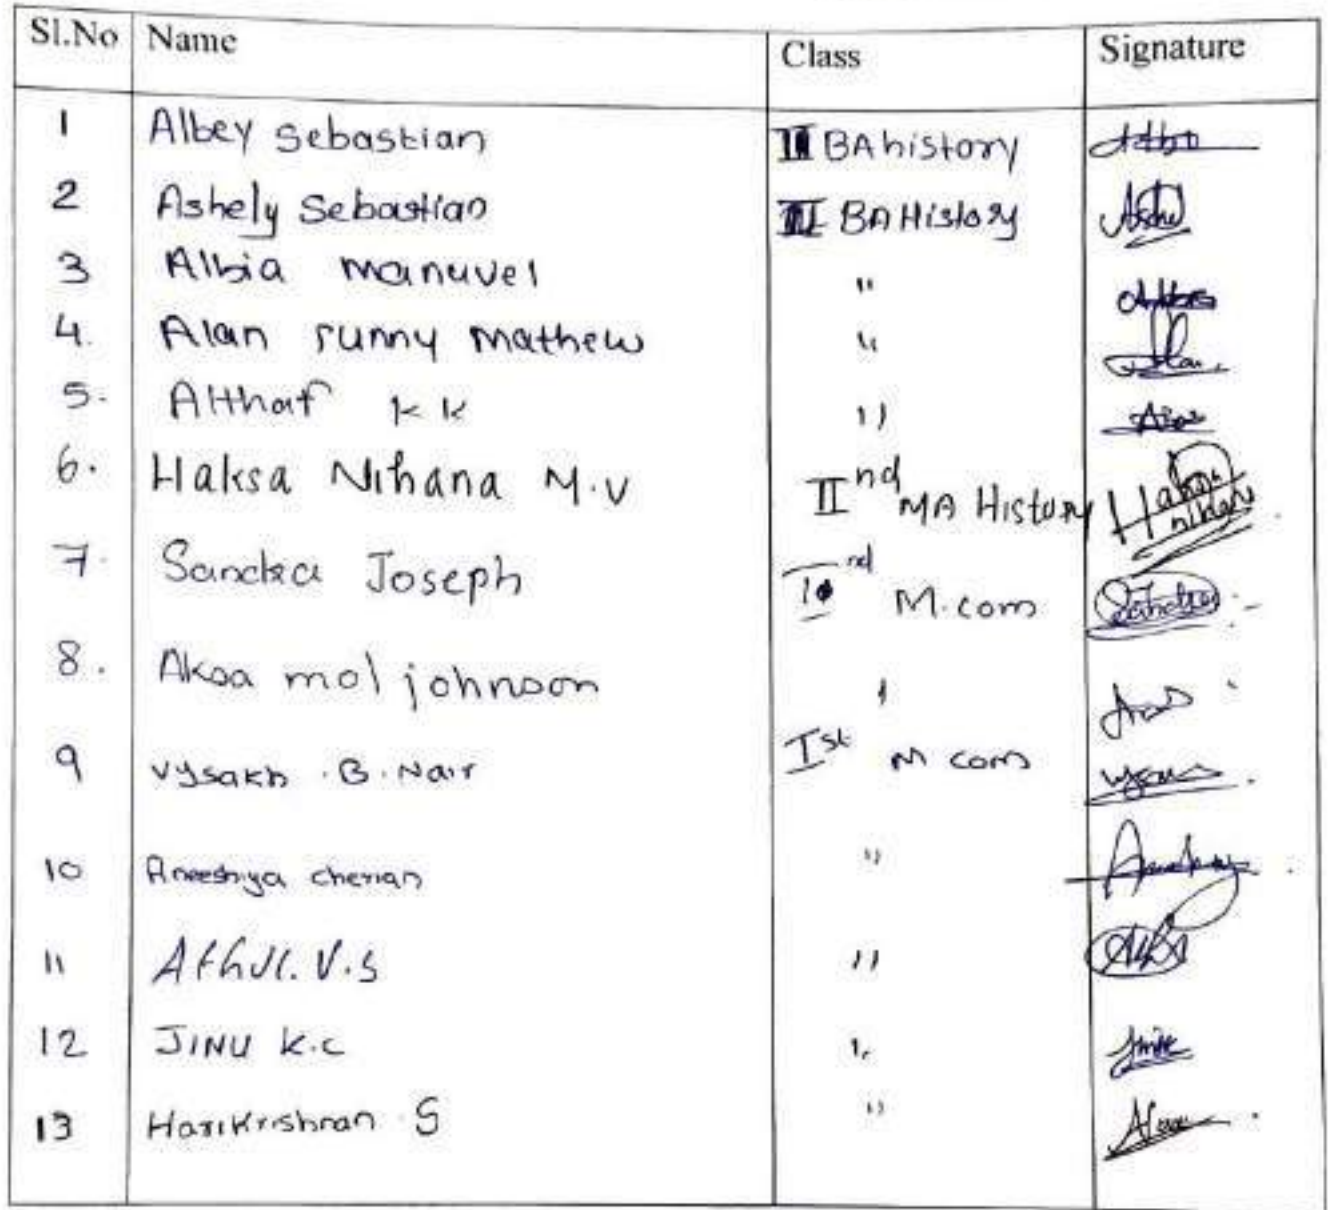 Sl.No Name Class Signature
1 Albey Sebastian II BA history
2 Ashely Sebastian II BA History
3 Albia manuvel "
4. Alan sunny mathew "
5. Althaf k k "
6. Haksa Nihana M.V IInd MA History Haksa nihana
7. Sandra Joseph IInd M.com Sandra
8. Aksa mol johnson "
9 vysakh .B. Nair Ist M com
10 Aneeshya cherian "
11 Athul. V.S "
12 JINU K.C "
13 Harikrishnan S "